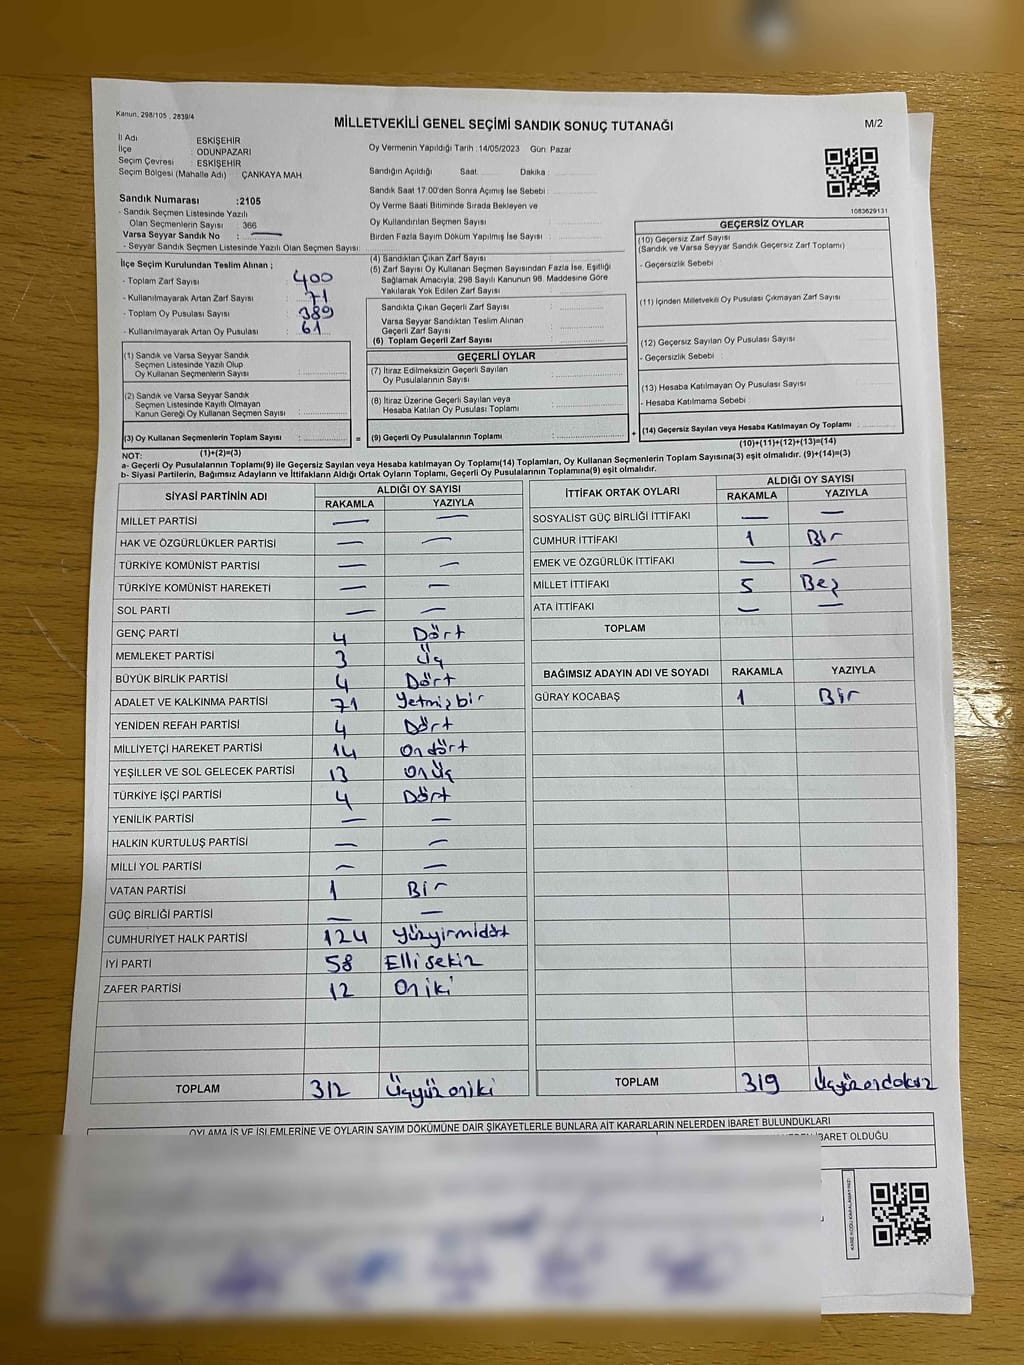 Kanun, 298/105 , 2839/4
MİLLETVEKİLİ GENEL SEÇİMİ SANDIK SONUÇ TUTANAĞI
M/2
İl Adı ESKİŞEHİR
İlçe : ODUNPAZARI
Seçim Çevresi : ESKİŞEHİR
Seçim Bölgesi (Mahalle Adı) : ÇANKAYA MAH.
Oy Vermenin Yapıldığı Tarih :14/05/2023 Gün: Pazar
Sandığın Açıldığı Saat: Dakika :
Sandık Saat 17.00'den Sonra Açımış İse Sebebi :
Oy Verme Saati Bitiminde Sırada Bekleyen ve
Oy Kullandırılan Seçmen Sayısı :
Birden Fazla Sayım Döküm Yapılmış İse Sayısı :
1083629131
Sandık Numarası :2105
- Sandık Seçmen Listesinde Yazılı
Olan Seçmenlerin Sayısı : 366
Varsa Seyyar Sandık No : —
- Seyyar Sandık Seçmen Listesinde Yazılı Olan Seçmen Sayısı:
İlçe Seçim Kurulundan Teslim Alınan ;
- Toplam Zarf Sayısı : 400
- Kullanılmayarak Artan Zarf Sayısı : 71
- Toplam Oy Pusulası Sayısı : 389
- Kullanılmayarak Artan Oy Pusulası : 61
(1) Sandık ve Varsa Seyyar Sandık
Seçmen Listesinde Yazılı Olup
Oy Kullanan Seçmenlerin Sayısı :
(2) Sandık ve Varsa Seyyar Sandık
Seçmen Listesinde Kayıtlı Olmayan
Kanun Gereği Oy Kullanan Seçmen Sayısı :
(3) Oy Kullanan Seçmenlerin Toplam Sayısı :
(1)+(2)=(3)
(4) Sandıktan Çıkan Zarf Sayısı :
(5) Zarf Sayısı Oy Kullanan Seçmen Sayısından Fazla İse, Eşitliği
Sağlamak Amacıyla, 298 Sayılı Kanunun 98. Maddesine Göre
Yakılarak Yok Edilen Zarf Sayısı :
Sandıkta Çıkan Geçerli Zarf Sayısı :
Varsa Seyyar Sandıktan Teslim Alınan
Geçerli Zarf Sayısı :
(6) Toplam Geçerli Zarf Sayısı :
GEÇERLİ OYLAR
(7) İtiraz Edilmeksizin Geçerli Sayılan
Oy Pusulalarının Sayısı :
(8) İtiraz Üzerine Geçerli Sayılan veya
Hesaba Katılan Oy Pusulası Toplamı :
= (9) Geçerli Oy Pusulalarının Toplamı : +
GEÇERSİZ OYLAR
(10) Geçersiz Zarf Sayısı :
(Sandık ve Varsa Seyyar Sandık Geçersiz Zarf Toplamı)
- Geçersizlik Sebebi :
(11) İçinden Milletvekili Oy Pusulası Çıkmayan Zarf Sayısı :
(12) Geçersiz Sayılan Oy Pusulası Sayısı :
- Geçersizlik Sebebi :
(13) Hesaba Katılmayan Oy Pusulası Sayısı :
- Hesaba Katılmama Sebebi :
(14) Geçersiz Sayılan veya Hesaba Katılmayan Oy Toplamı :
(10)+(11)+(12)+(13)=(14)
NOT:
a- Geçerli Oy Pusulalarının Toplamı(9) ile Geçersiz Sayılan veya Hesaba katılmayan Oy Toplamı(14) Toplamları, Oy Kullanan Seçmenlerin Toplam Sayısına(3) eşit olmalıdır. (9)+(14)=(3)
b- Siyasi Partilerin, Bağımsız Adayların ve İttifakların Aldığı Ortak Oyların Toplamı, Geçerli Oy Pusulalarının Toplamına(9) eşit olmalıdır.
SİYASİ PARTİNİN ADI ALDIĞI OY SAYISI
RAKAMLA YAZIYLA
MİLLET PARTİSİ — —
HAK VE ÖZGÜRLÜKLER PARTİSİ — —
TÜRKİYE KOMÜNİST PARTİSİ — —
TÜRKİYE KOMÜNİST HAREKETİ — —
SOL PARTİ — —
GENÇ PARTİ 4 Dört
MEMLEKET PARTİSİ 3 Üç
BÜYÜK BİRLİK PARTİSİ 4 Dört
ADALET VE KALKINMA PARTİSİ 71 Yetmişbir
YENİDEN REFAH PARTİSİ 4 Dört
MİLLİYETÇİ HAREKET PARTİSİ 14 Ondört
YEŞİLLER VE SOL GELECEK PARTİSİ 13 Onüç
TÜRKİYE İŞÇİ PARTİSİ 4 Dört
YENİLİK PARTİSİ — —
HALKIN KURTULUŞ PARTİSİ — —
MİLLİ YOL PARTİSİ — —
VATAN PARTİSİ 1 Bir
GÜÇ BİRLİĞİ PARTİSİ — —
CUMHURİYET HALK PARTİSİ 124 Yüzyirmidört
İYİ PARTİ 58 Ellisekiz
ZAFER PARTİSİ 12 Oniki
TOPLAM 312 Üçyüzoniki
İTTİFAK ORTAK OYLARI ALDIĞI OY SAYISI
RAKAMLA YAZIYLA
SOSYALİST GÜÇ BİRLİĞİ İTTİFAKI — —
CUMHUR İTTİFAKI 1 Bir
EMEK VE ÖZGÜRLÜK İTTİFAKI — —
MİLLET İTTİFAKI 5 Beş
ATA İTTİFAKI — —
TOPLAM
BAĞIMSIZ ADAYIN ADI VE SOYADI RAKAMLA YAZIYLA
GÜRAY KOCABAŞ 1 Bir
TOPLAM 319 Üçyüzondokuz
OYLAMA İŞ VE İŞLEMLERİNE VE OYLARIN SAYIM DÖKÜMÜNE DAİR ŞİKAYETLERLE BUNLARA AİT KARARLARIN NELERDEN İBARET BULUNDUKLARI
İBARET OLDUĞU